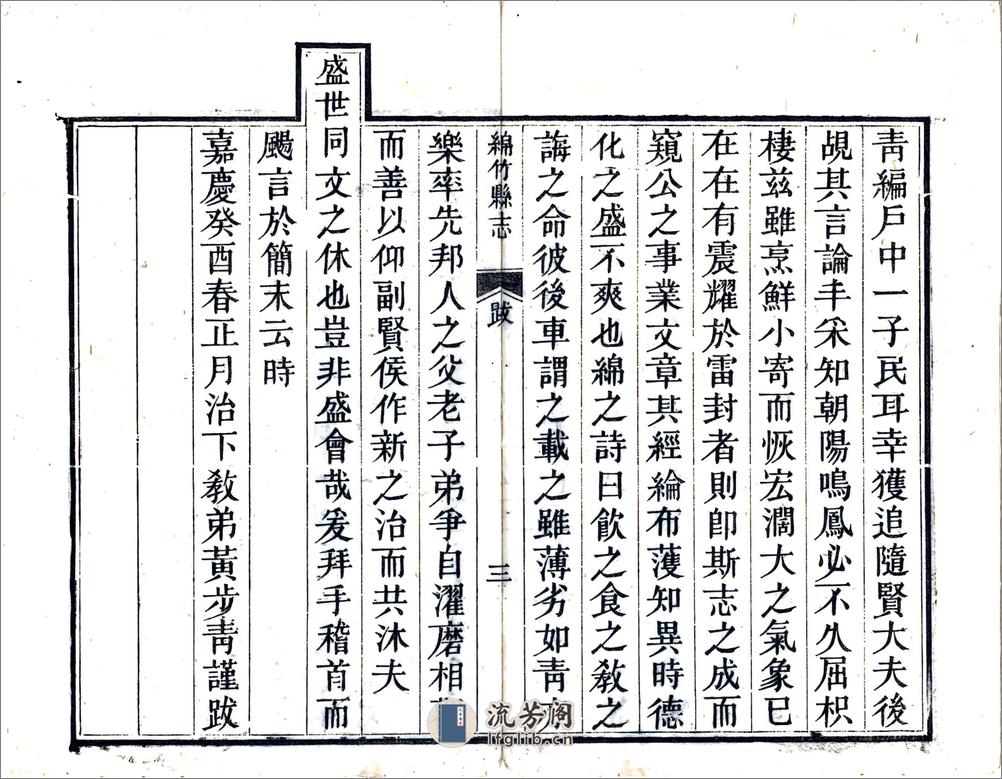 青編戸中一子民耳幸獲追隨賢大夫後
覘其言論丰采知朝陽鳴鳳必不久屈枳
棲兹雖烹鮮小寄而恢宏濶大之氣象已
在在有震耀於雷封者則卽斯志之成而
窺公之事業文章其經綸布濩知異時德
化之盛不爽也綿之詩曰飲之食之敎之
誨之命彼後車謂之載之雖薄劣如靑
綿竹縣志 跋 三
樂率先邦人之父老子弟爭自濯磨相
而善以仰副賢侯作新之治而共沐夫
盛世同文之休也豈非盛會哉爰拜手稽首而
颺言於簡末云時
嘉慶癸酉春正月治下敎弟黃步靑謹跋
流芳閣
lfglib.cn